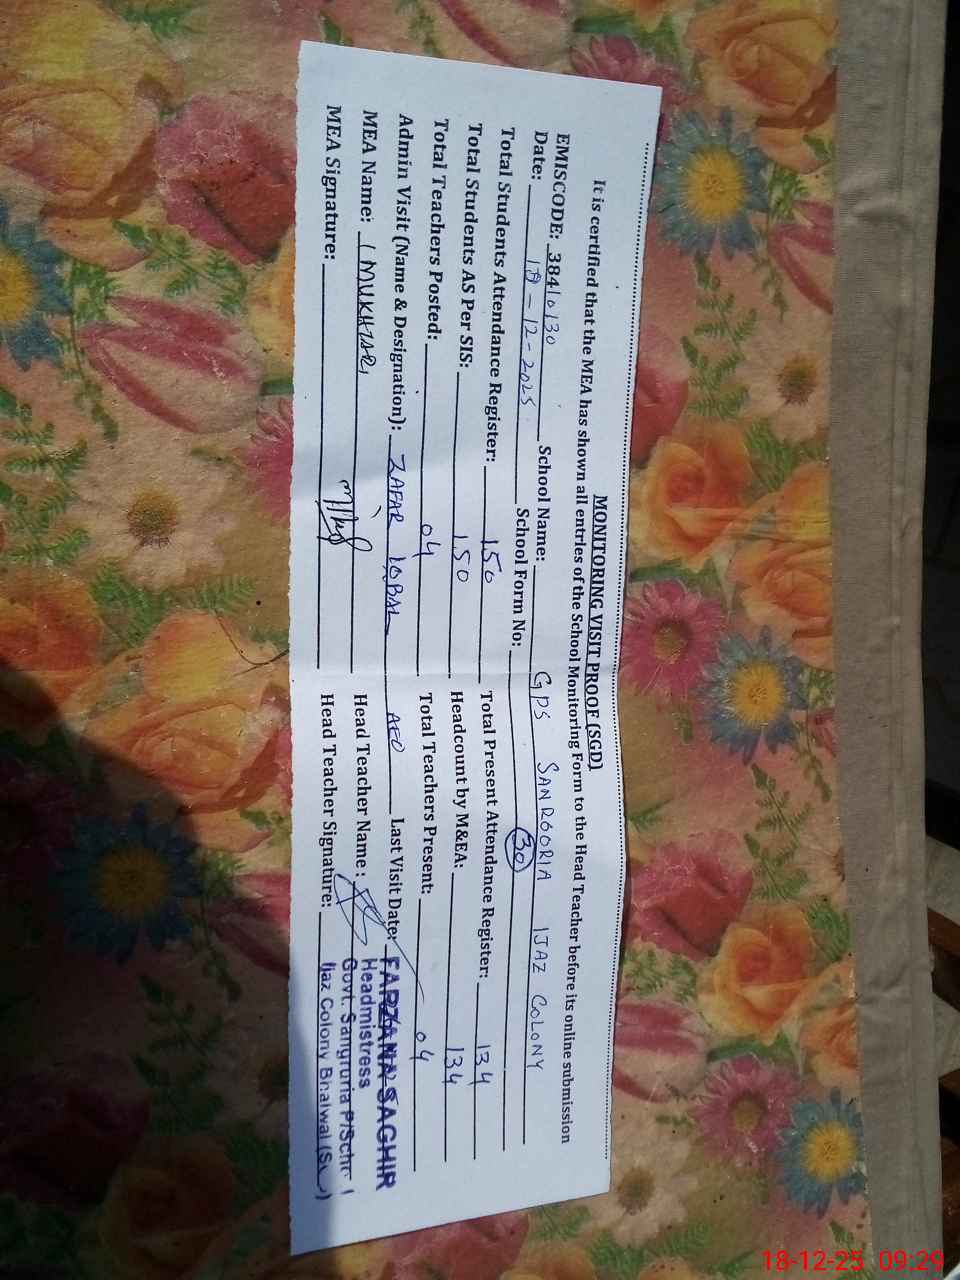 MONITORING VISIT PROOF (SGD)
It is certified that the MEA has shown all entries of the School Monitoring Form to the Head Teacher before its online submission
EMISCODE: 38410130 School Name: GPS SANROORIA IJAZ COLONY
Date: -12-2025 School Form No: 30
Total Students Attendance Register: 150 Total Present Attendance Register: 134
Total Students AS Per SIS: 150 Headcount by M&EA: 134
Total Teachers Posted: 04 Total Teachers Present: 04
Admin Visit (Name & Designation): ZAFAR IQBAL AEO Last Visit Date:
MEA Name: Head Teacher Name:
MEA Signature: Head Teacher Signature:
FARZANA SAGHIR
Headmistress
Govt. Sangruria P/
Ijaz Colony Bhalwal
18-12-25 09:29